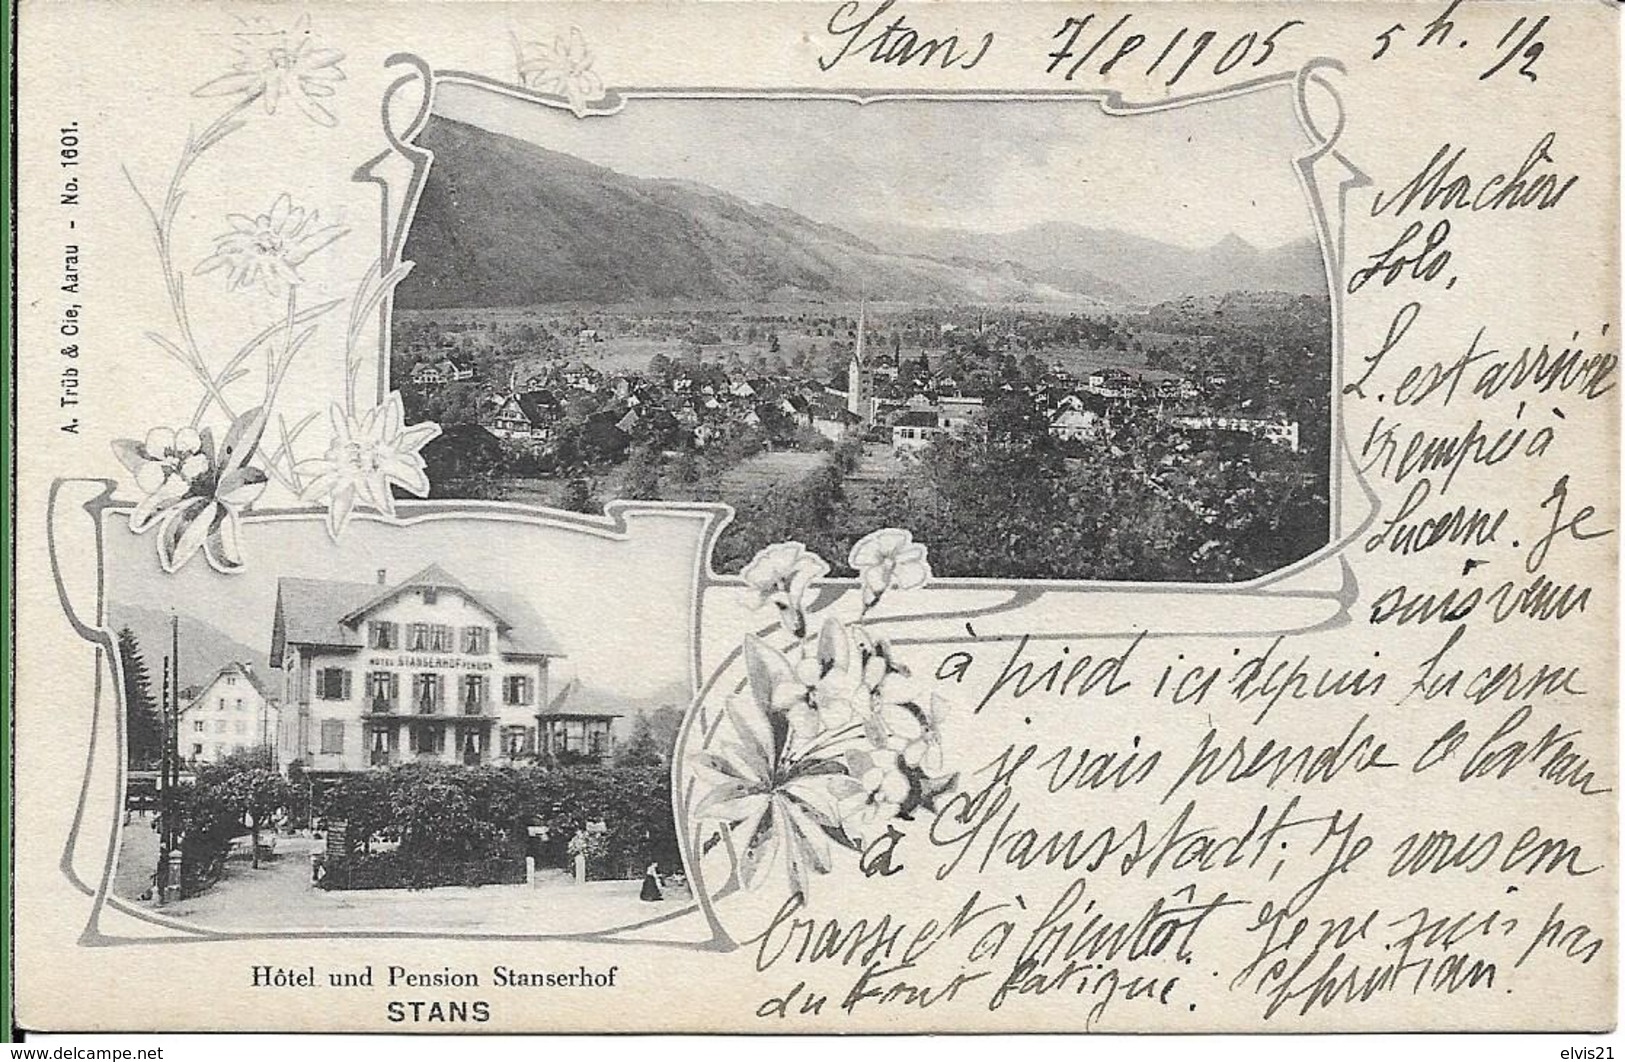 Stans 7/8 1905 5h. 1/2
Ma chère
Lolo,
L. est arrivée
trempée à
Lucerne. Je
suis venu
à pied ici depuis Lucerne
je vais prendre le bateau
à Stansstadt; Je vous em
brasse et à bientôt. Je ne suis pas
du tout fatigué. Christian.
A. Trüb & Cie, Aarau - No. 1601.
HÔTEL STANSERHOF PENSION
Hôtel und Pension Stanserhof
STANS
delcampe.net
elvis21